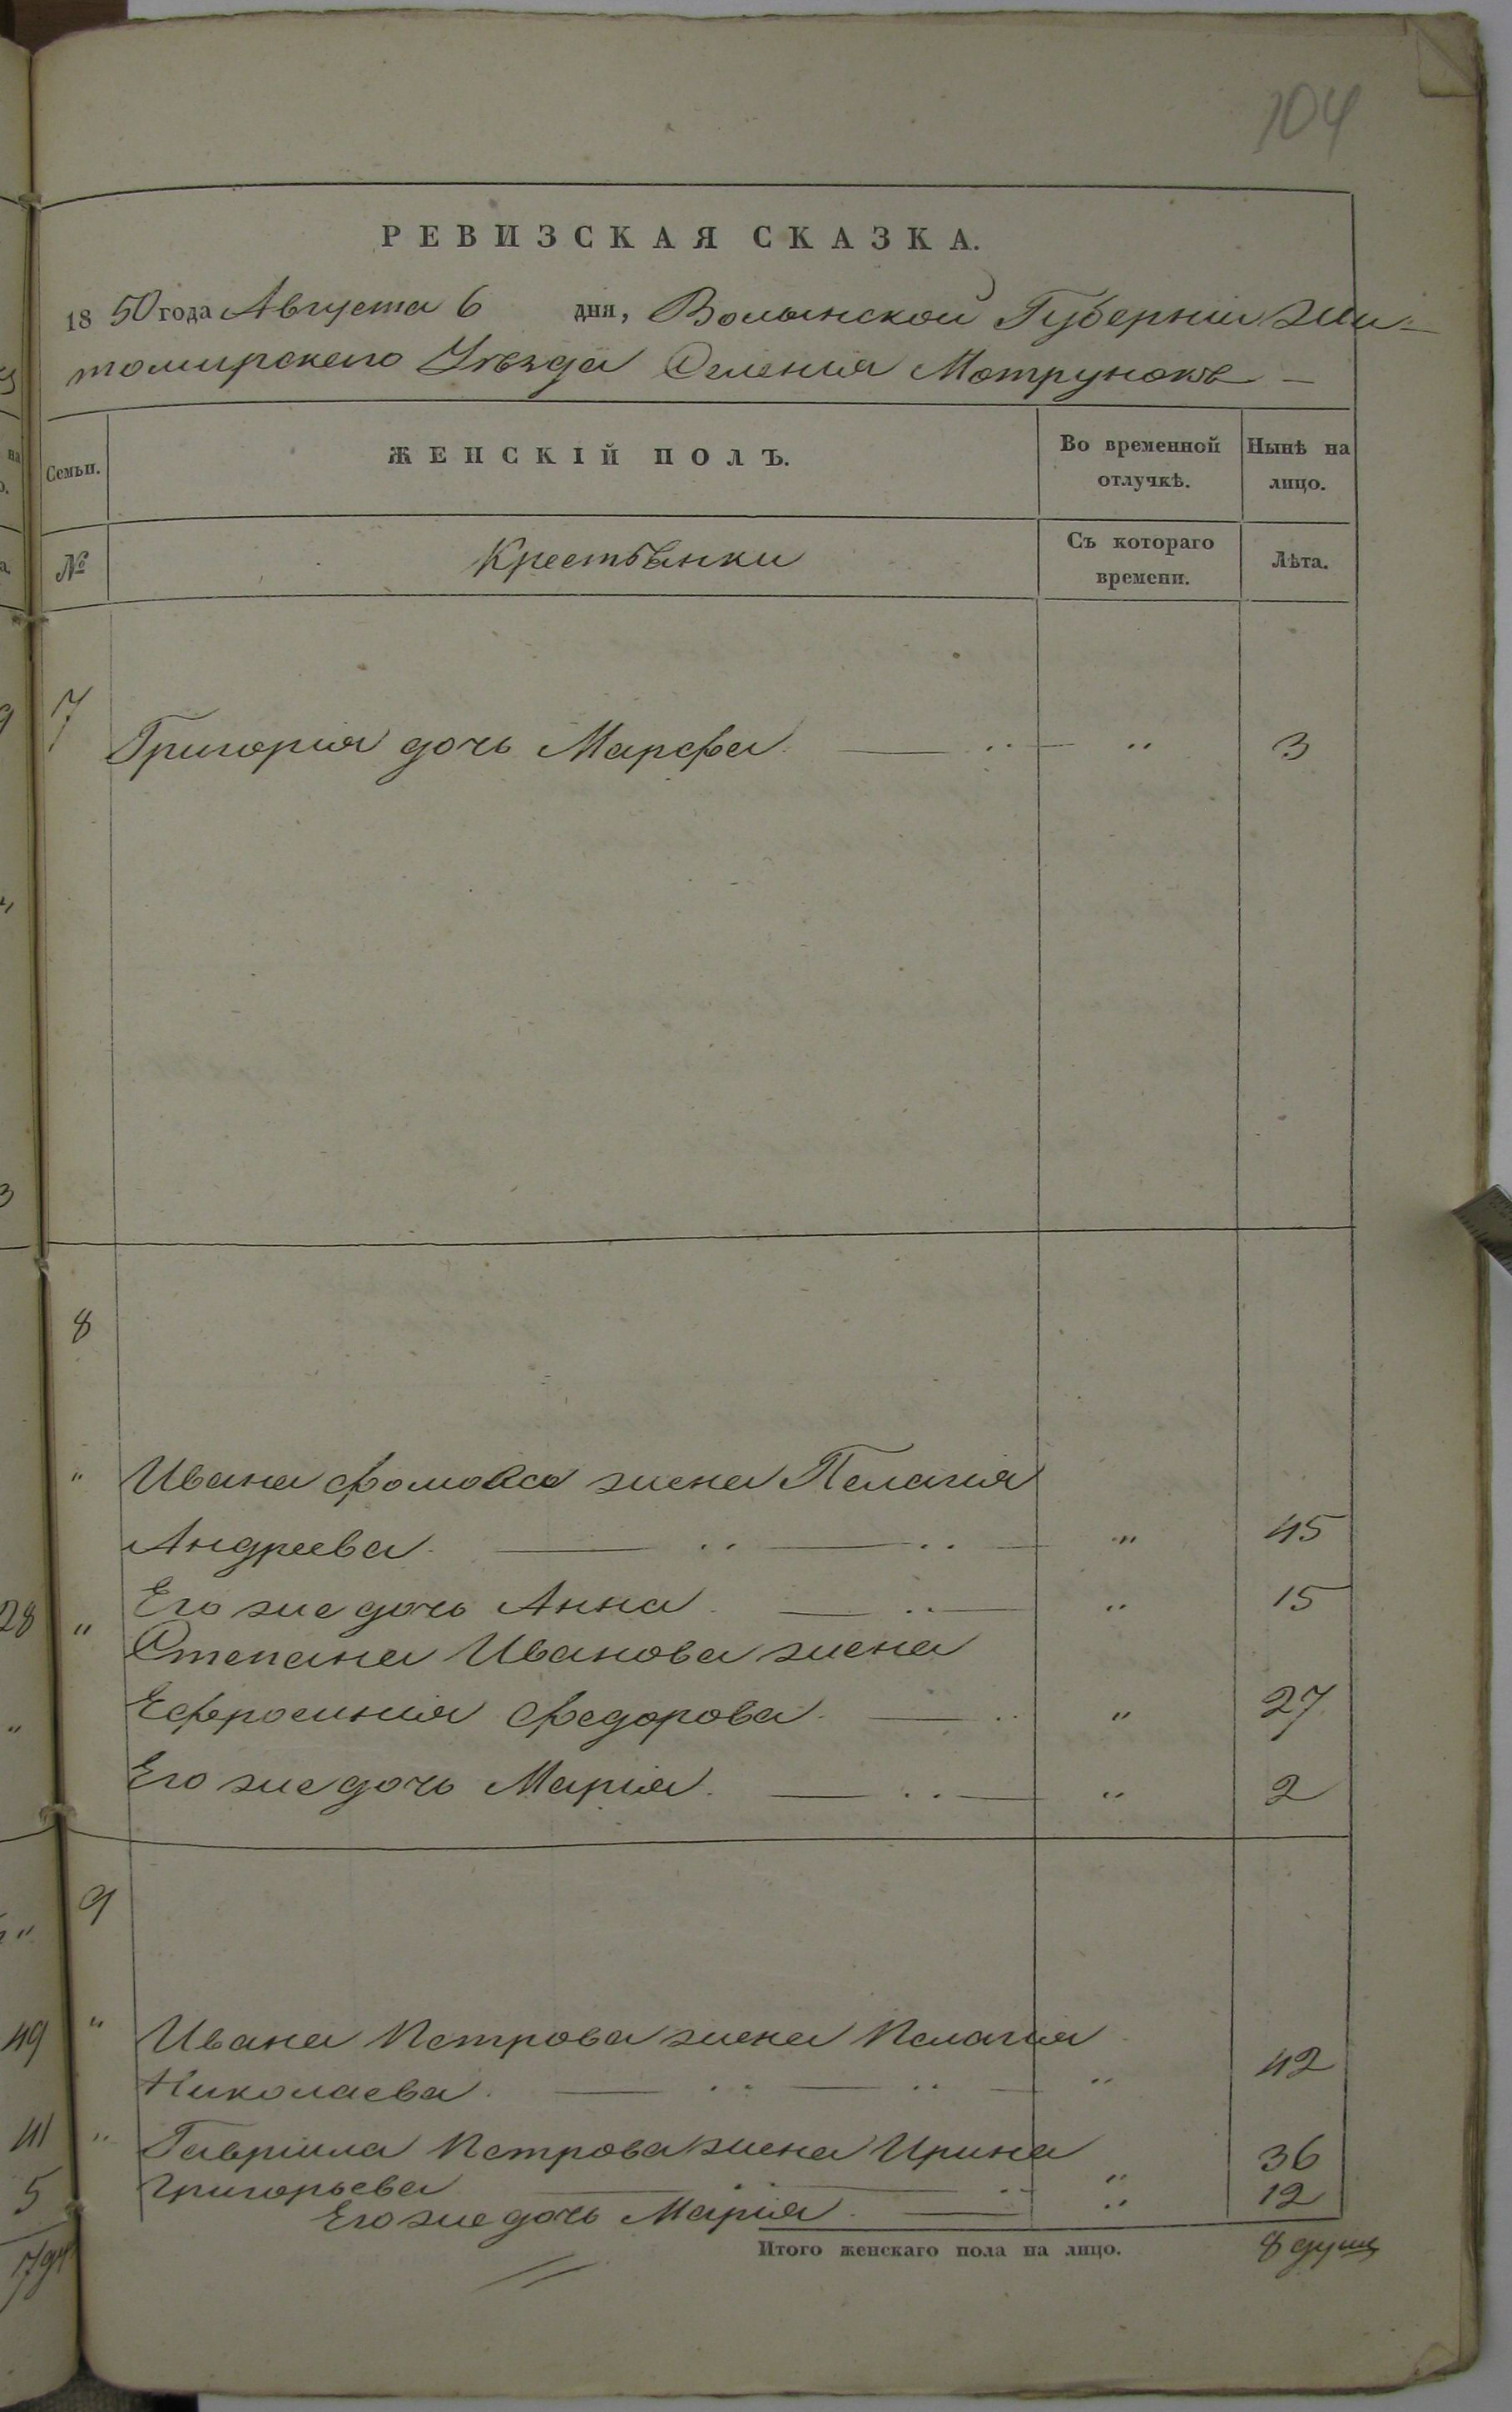 104
РЕВИЗСКАЯ СКАЗКА.
1850 года Августа 6 дня, Волынской Губерніи Жи-
томирскаго Уѣзда Селенія Мотрунокъ —
Семьи.
ЖЕНСКІЙ ПОЛЪ.
Во временной отлучкѣ.
Нынѣ на лицо.
№
Крестьянки
Съ котораго времени.
Лѣта.
7
Григорія дочь Марфа. — „ — „ 3
8
„ Ивана Фомова жена Пелагія
Андреева. — „ — „ — „ 45
Его же дочь Анна. — „ — „ 15
„ Степана Иванова жена
Ефросинія Федорова. — „ „ 27
Его же дочь Марія. — „ — „ 2
9
„ Ивана Петрова жена Пелагія
Николаева. — „ — „ — „ 42
„ Гавріила Петрова жена Ирина
Григорьева — „ — „ „ 36
Его же дочь Марія. — „ 12
Итого женскаго пола на лицо. 8 душъ
28
49
41
5